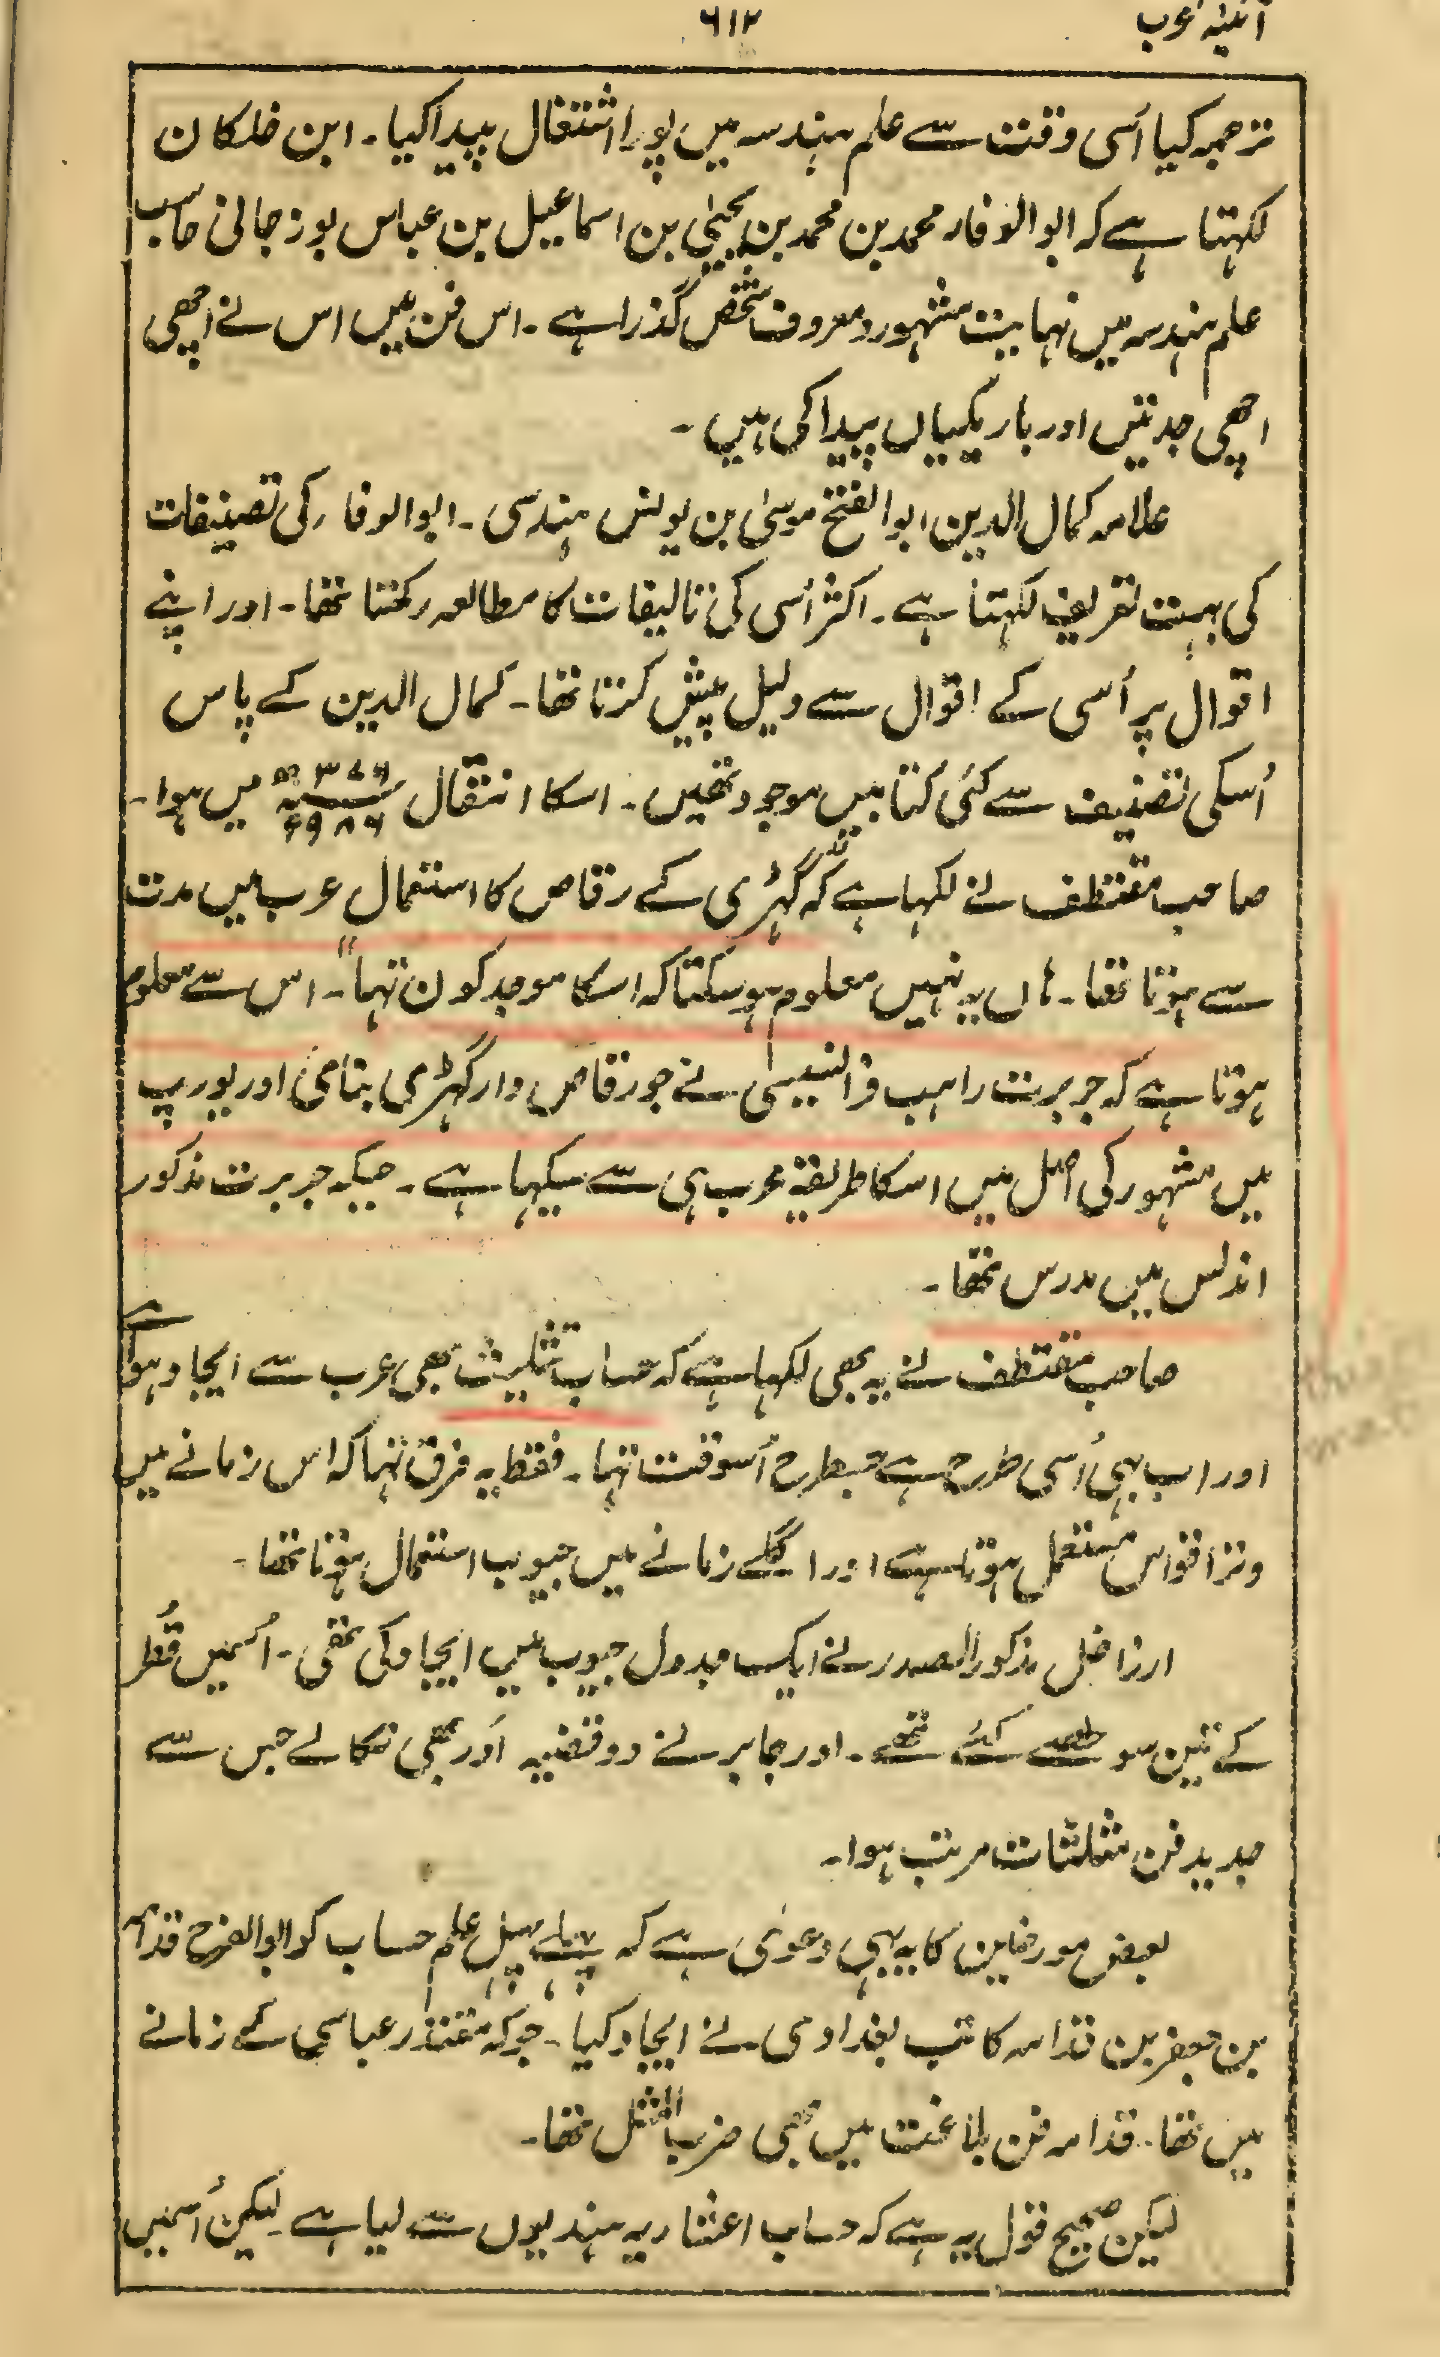 آئینہ عرب
۶۱۲
ترجمہ کیا اُسی وقت سے علم ہندسہ میں پورا اشتغال پیدا کیا۔ ابن خلکان
لکہتا ہے کہ ابو الوفار محمد بن محمد بن یحییٰ بن اسماعیل بن عباس بوزجانی حاسب
علم ہندسہ میں نہایت مشہور و معروف شخص گذرا ہے۔ اس فن میں اس نے اچھی
اچھی جدتیں اور باریکیاں پیدا کی ہیں۔
علامہ کمال الدین ابو الفتح موسیٰ بن یونس ہندسی۔ ابو الوفار کی تصنیفات
کی بہت تعریف لکہتا ہے۔ اکثر اُسی کی تالیفات کا مطالعہ رکھتا تھا۔ اور اپنے
اقوال پر اُسی کے اقوال سے دلیل پیش کرتا تھا۔ کمال الدین کے پاس
اُسکی تصنیف سے کئی کتابیں موجود تھیں۔ اسکا انتقال ۳۷۶ھ ۹۸۶ء میں ہوا۔
صاحب مقتطف نے لکہا ہے کہ "گہڑی کے رقاص کا استعمال عرب میں مدت
سے ہوتا تھا۔ ہاں یہ نہیں معلوم ہو سکتا کہ اسکا موجد کون تہا"۔ اس سے معلوم
ہوتا ہے کہ جربرت راہب فرانسیسی نے جو رقاص دار گہڑی بنائی اور یورپ
میں مشہور کی اصل میں اسکا طریقہ عرب ہی سے سیکہا ہے۔ جبکہ جربرت مذکور
اندلس میں مدرس تھا۔
صاحب مقتطف نے یہ بھی لکہا ہے کہ حساب تثلیث بھی عرب سے ایجاد ہوا ہے
اور اب بہی اُسی طرح ہے جسطرح اُسوقت تہا۔ فقط یہ فرق تہا کہ اس زمانے میں
وتر اقواس مستعمل ہوتا ہے اور اگلے زمانے میں جیوب استعمال ہوتا تھا۔
ارزاخل مذکور الصدر نے ایک جدول جیوب میں ایجاد کی تھی۔ اُسمیں قُطر
کے تین سو حصے کئے تھے۔ اور جابر نے دو قضیہ اَور بھی نکالے جس سے
جدید فن مثلثات مرتب ہوا۔
بعض مورخین کا یہ بہی دعویٰ ہے کہ پہلے پہل علم حساب کو ابو الفرح قدامہ
بن جعفر بن قدامہ کاتب بغدادی نے ایجاد کیا۔ جو کہ مقتدر عباسی کے زمانے
میں تھا۔ قدامہ فن بلاغت میں بھی ضرب المثل تھا۔
لیکن صحیح قول یہ ہے کہ حساب اعشاریہ ہندیوں سے لیا ہے۔ لیکن اُسمیں